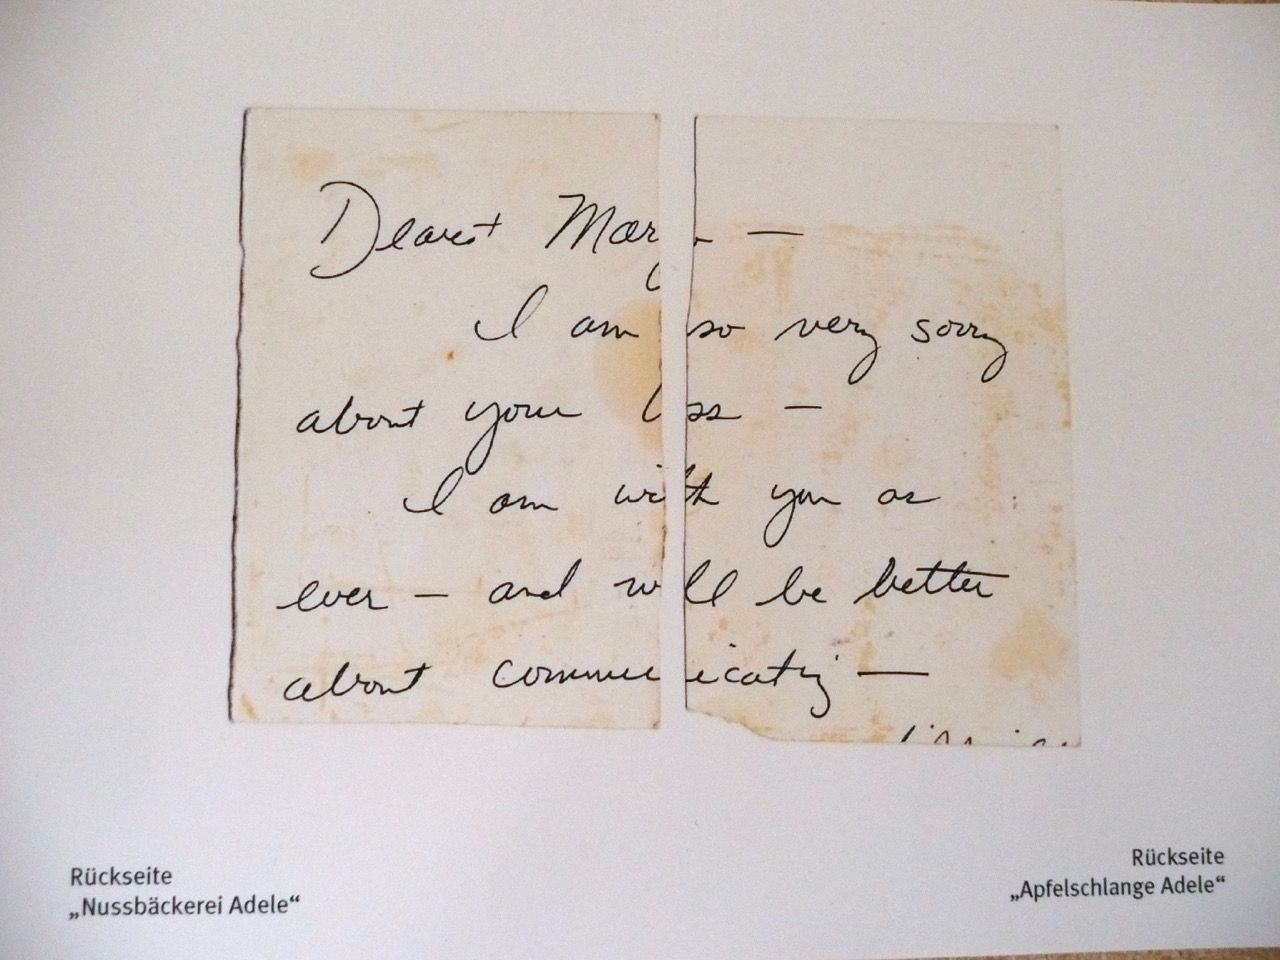 Dearest —
I am so very sorry
about your loss —
I am with you as
ever — and will be better
about communicating —
Rückseite
„Nussbäckerei Adele“
Rückseite
„Apfelschlange Adele“